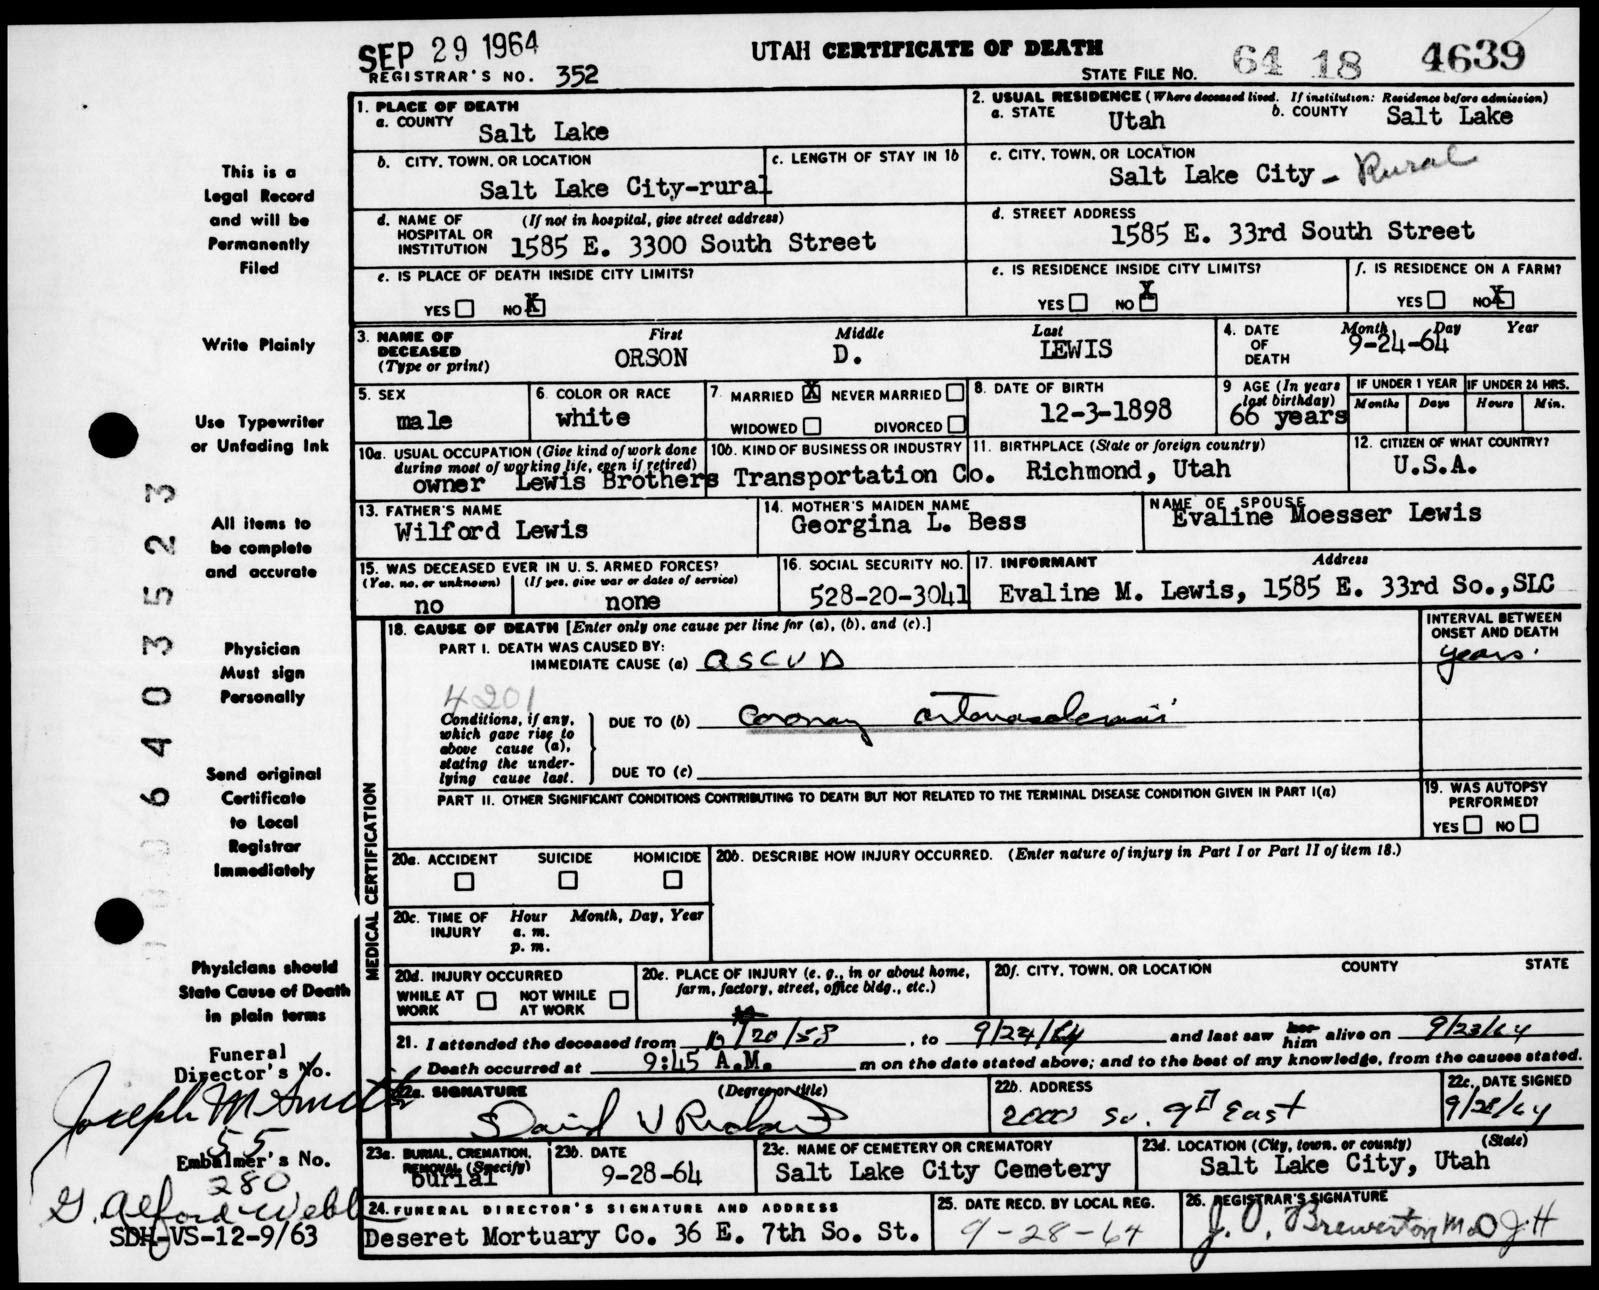 SEP 29 1964
UTAH CERTIFICATE OF DEATH
REGISTRAR'S NO. 352
STATE FILE NO. 64 18 4639
This is a
Legal Record
and will be
Permanently
Filed
Write Plainly
Use Typewriter
or Unfading Ink
All items to
be complete
and accurate
Physician
Must sign
Personally
Send original
Certificate
to Local
Registrar
Immediately
Physicians should
State Cause of Death
in plain terms
Funeral
Director's No.
Joseph M Smith
55
Embalmer's No.
280
G. Alford Webb
SDH-VS-12-9/63
6403523
1. PLACE OF DEATH
a. COUNTY
Salt Lake
2. USUAL RESIDENCE (Where deceased lived. If institution: Residence before admission)
a. STATE Utah
b. COUNTY Salt Lake
b. CITY, TOWN, OR LOCATION
Salt Lake City-rural
c. LENGTH OF STAY IN 1b
c. CITY, TOWN, OR LOCATION
Salt Lake City - Rural
d. NAME OF HOSPITAL OR INSTITUTION (If not in hospital, give street address)
1585 E. 3300 South Street
d. STREET ADDRESS
1585 E. 33rd South Street
e. IS PLACE OF DEATH INSIDE CITY LIMITS?
YES NO X
e. IS RESIDENCE INSIDE CITY LIMITS?
YES NO X
f. IS RESIDENCE ON A FARM?
YES NO X
3. NAME OF DECEASED (Type or print)
First Middle Last
ORSON D. LEWIS
4. DATE OF DEATH
Month Day Year
9-24-64
5. SEX
male
6. COLOR OR RACE
white
7. MARRIED X NEVER MARRIED
WIDOWED DIVORCED
8. DATE OF BIRTH
12-3-1898
9 AGE (In years last birthday)
66 years
IF UNDER 1 YEAR
Months Days
IF UNDER 24 HRS.
Hours Min.
10a. USUAL OCCUPATION (Give kind of work done during most of working life, even if retired)
10b. KIND OF BUSINESS OR INDUSTRY
owner Lewis Brothers Transportation Co.
11. BIRTHPLACE (State or foreign country)
Richmond, Utah
12. CITIZEN OF WHAT COUNTRY?
U.S.A.
13. FATHER'S NAME
Wilford Lewis
14. MOTHER'S MAIDEN NAME
Georgina L. Bess
NAME OF SPOUSE
Evaline Moesser Lewis
15. WAS DECEASED EVER IN U. S. ARMED FORCES?
(Yes, no, or unknown) (If yes, give war or dates of service)
no none
16. SOCIAL SECURITY NO.
528-20-3041
17. INFORMANT Address
Evaline M. Lewis, 1585 E. 33rd So.,SLC
MEDICAL CERTIFICATION
18. CAUSE OF DEATH [Enter only one cause per line for (a), (b), and (c).]
INTERVAL BETWEEN ONSET AND DEATH
PART I. DEATH WAS CAUSED BY:
IMMEDIATE CAUSE (a) ASCVD
years.
4201
Conditions, if any, which gave rise to above cause (a), stating the underlying cause last.
DUE TO (b) Coronary arteriosclerosis
DUE TO (c)
PART II. OTHER SIGNIFICANT CONDITIONS CONTRIBUTING TO DEATH BUT NOT RELATED TO THE TERMINAL DISEASE CONDITION GIVEN IN PART I(a)
19. WAS AUTOPSY PERFORMED?
YES NO
20a. ACCIDENT SUICIDE HOMICIDE
20b. DESCRIBE HOW INJURY OCCURRED. (Enter nature of injury in Part I or Part II of item 18.)
20c. TIME OF INJURY
Hour Month, Day, Year
a. m.
p. m.
20d. INJURY OCCURRED
WHILE AT WORK NOT WHILE AT WORK
20e. PLACE OF INJURY (e. g., in or about home, farm, factory, street, office bldg., etc.)
20f. CITY, TOWN, OR LOCATION COUNTY STATE
21. I attended the deceased from 10/20/58, to 9/24/64 and last saw her him alive on 9/23/64
Death occurred at 9:45 A.M. m on the date stated above; and to the best of my knowledge, from the causes stated.
22a. SIGNATURE (Degree or title)
David V Richards
22b. ADDRESS
2000 So. 9th East
22c. DATE SIGNED
9/28/64
23a. BURIAL, CREMATION, REMOVAL (Specify)
burial
23b. DATE
9-28-64
23c. NAME OF CEMETERY OR CREMATORY
Salt Lake City Cemetery
23d. LOCATION (City, town, or county) (State)
Salt Lake City, Utah
24. FUNERAL DIRECTOR'S SIGNATURE AND ADDRESS
Deseret Mortuary Co. 36 E. 7th So. St.
25. DATE RECD. BY LOCAL REG.
9-28-64
26. REGISTRAR'S SIGNATURE
J. O. Brewerton M.D JH